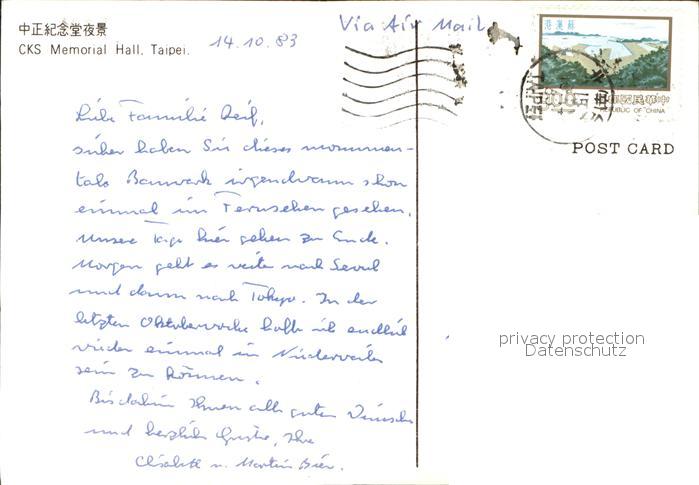 中正紀念堂夜景
CKS Memorial Hall, Taipei.
14.10.83
Via Air Mail
蘇澳港
中華民國
REPUBLIC OF CHINA
POST CARD
Liebe Familie
sicher haben Sie dieses monumen-
tale Bauwerk irgendwann schon
einmal im Fernsehen gesehen.
Unsere Tage hier gehen zu Ende.
Morgen geht es weiter nach Seoul
und dann nach Tokyo. In der
letzten Oktoberwoche hoffe ich endlich
wieder einmal in Niederweiler
sein zu können.
Bis dahin Ihnen alle guten Wünsche
und herzliche Grüße, Ihre
Elisabeth u. Martin Bier.
privacy protection
Datenschutz